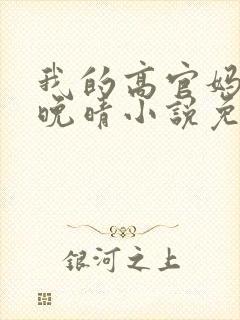 我的高官妈
晚晴小说免
银河之上